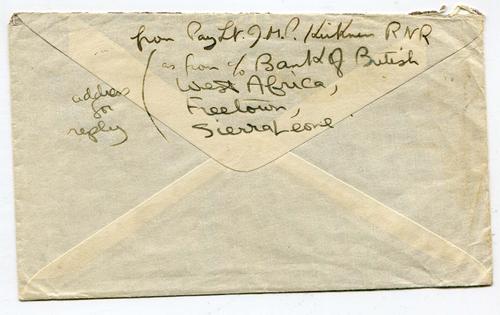 from Pay Lt. J M. P. Kirkness RNR
as from c/o Bank of British
West Africa,
Freetown,
Sierra Leone.
address
for
reply